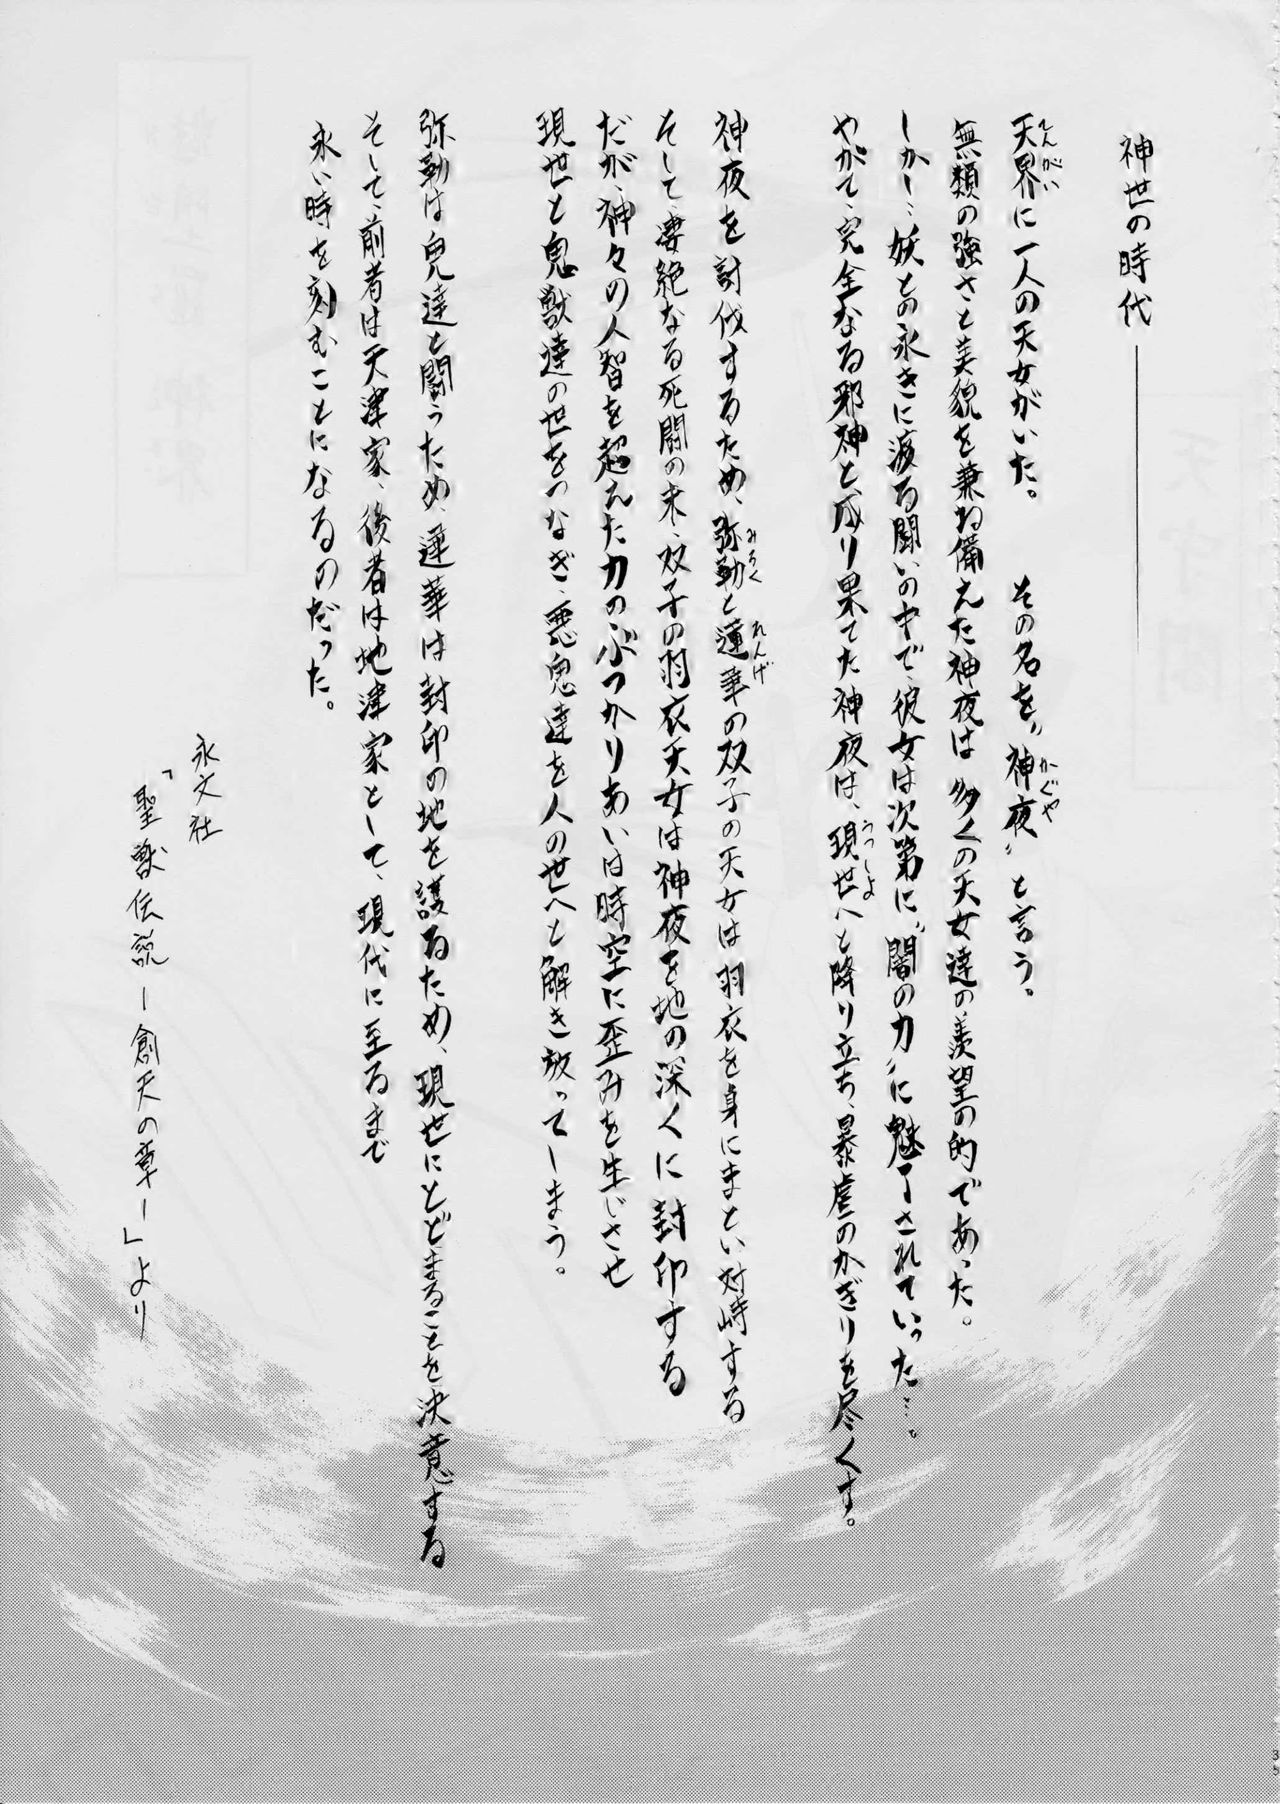 神世の時代――――
天界に一人の天女がいた。　その名を〝神夜〟と言う。
無類の強さと美貌を兼ね備えた神夜は多くの天女達の羨望の的であった。
しかし…妖との永きに渡る闘いの中で、彼女は次第に〝闇の力〟に魅了されていった…。
やがて、完全なる邪神と成り果てた神夜は、現世へと降り立ち、暴虐のかぎりを尽くす。
神夜を討伐するため、弥勒と蓮華の双子の天女は羽衣を身にまとい対峙する
そして、凄絶なる死闘の末、双子の羽衣天女は神夜を地の深くに封印する
だが、神々の人智を超えた力のぶつかりあいは時空に歪みを生じさせ
現世と鬼獣達の世をつなぎ、悪鬼達を人の世へと解き放ってしまう。
弥勒は鬼達と闘うため、蓮華は封印の地を護るため、現世にとどまることを決意する
そして、前者は天津家、後者は地津家として、現代に至るまで
永い時を刻むことになるのだった。
永文社
「聖獣伝説―創天の章―」より
35
てんがい
かぐや
うつしよ
みろく
れんげ